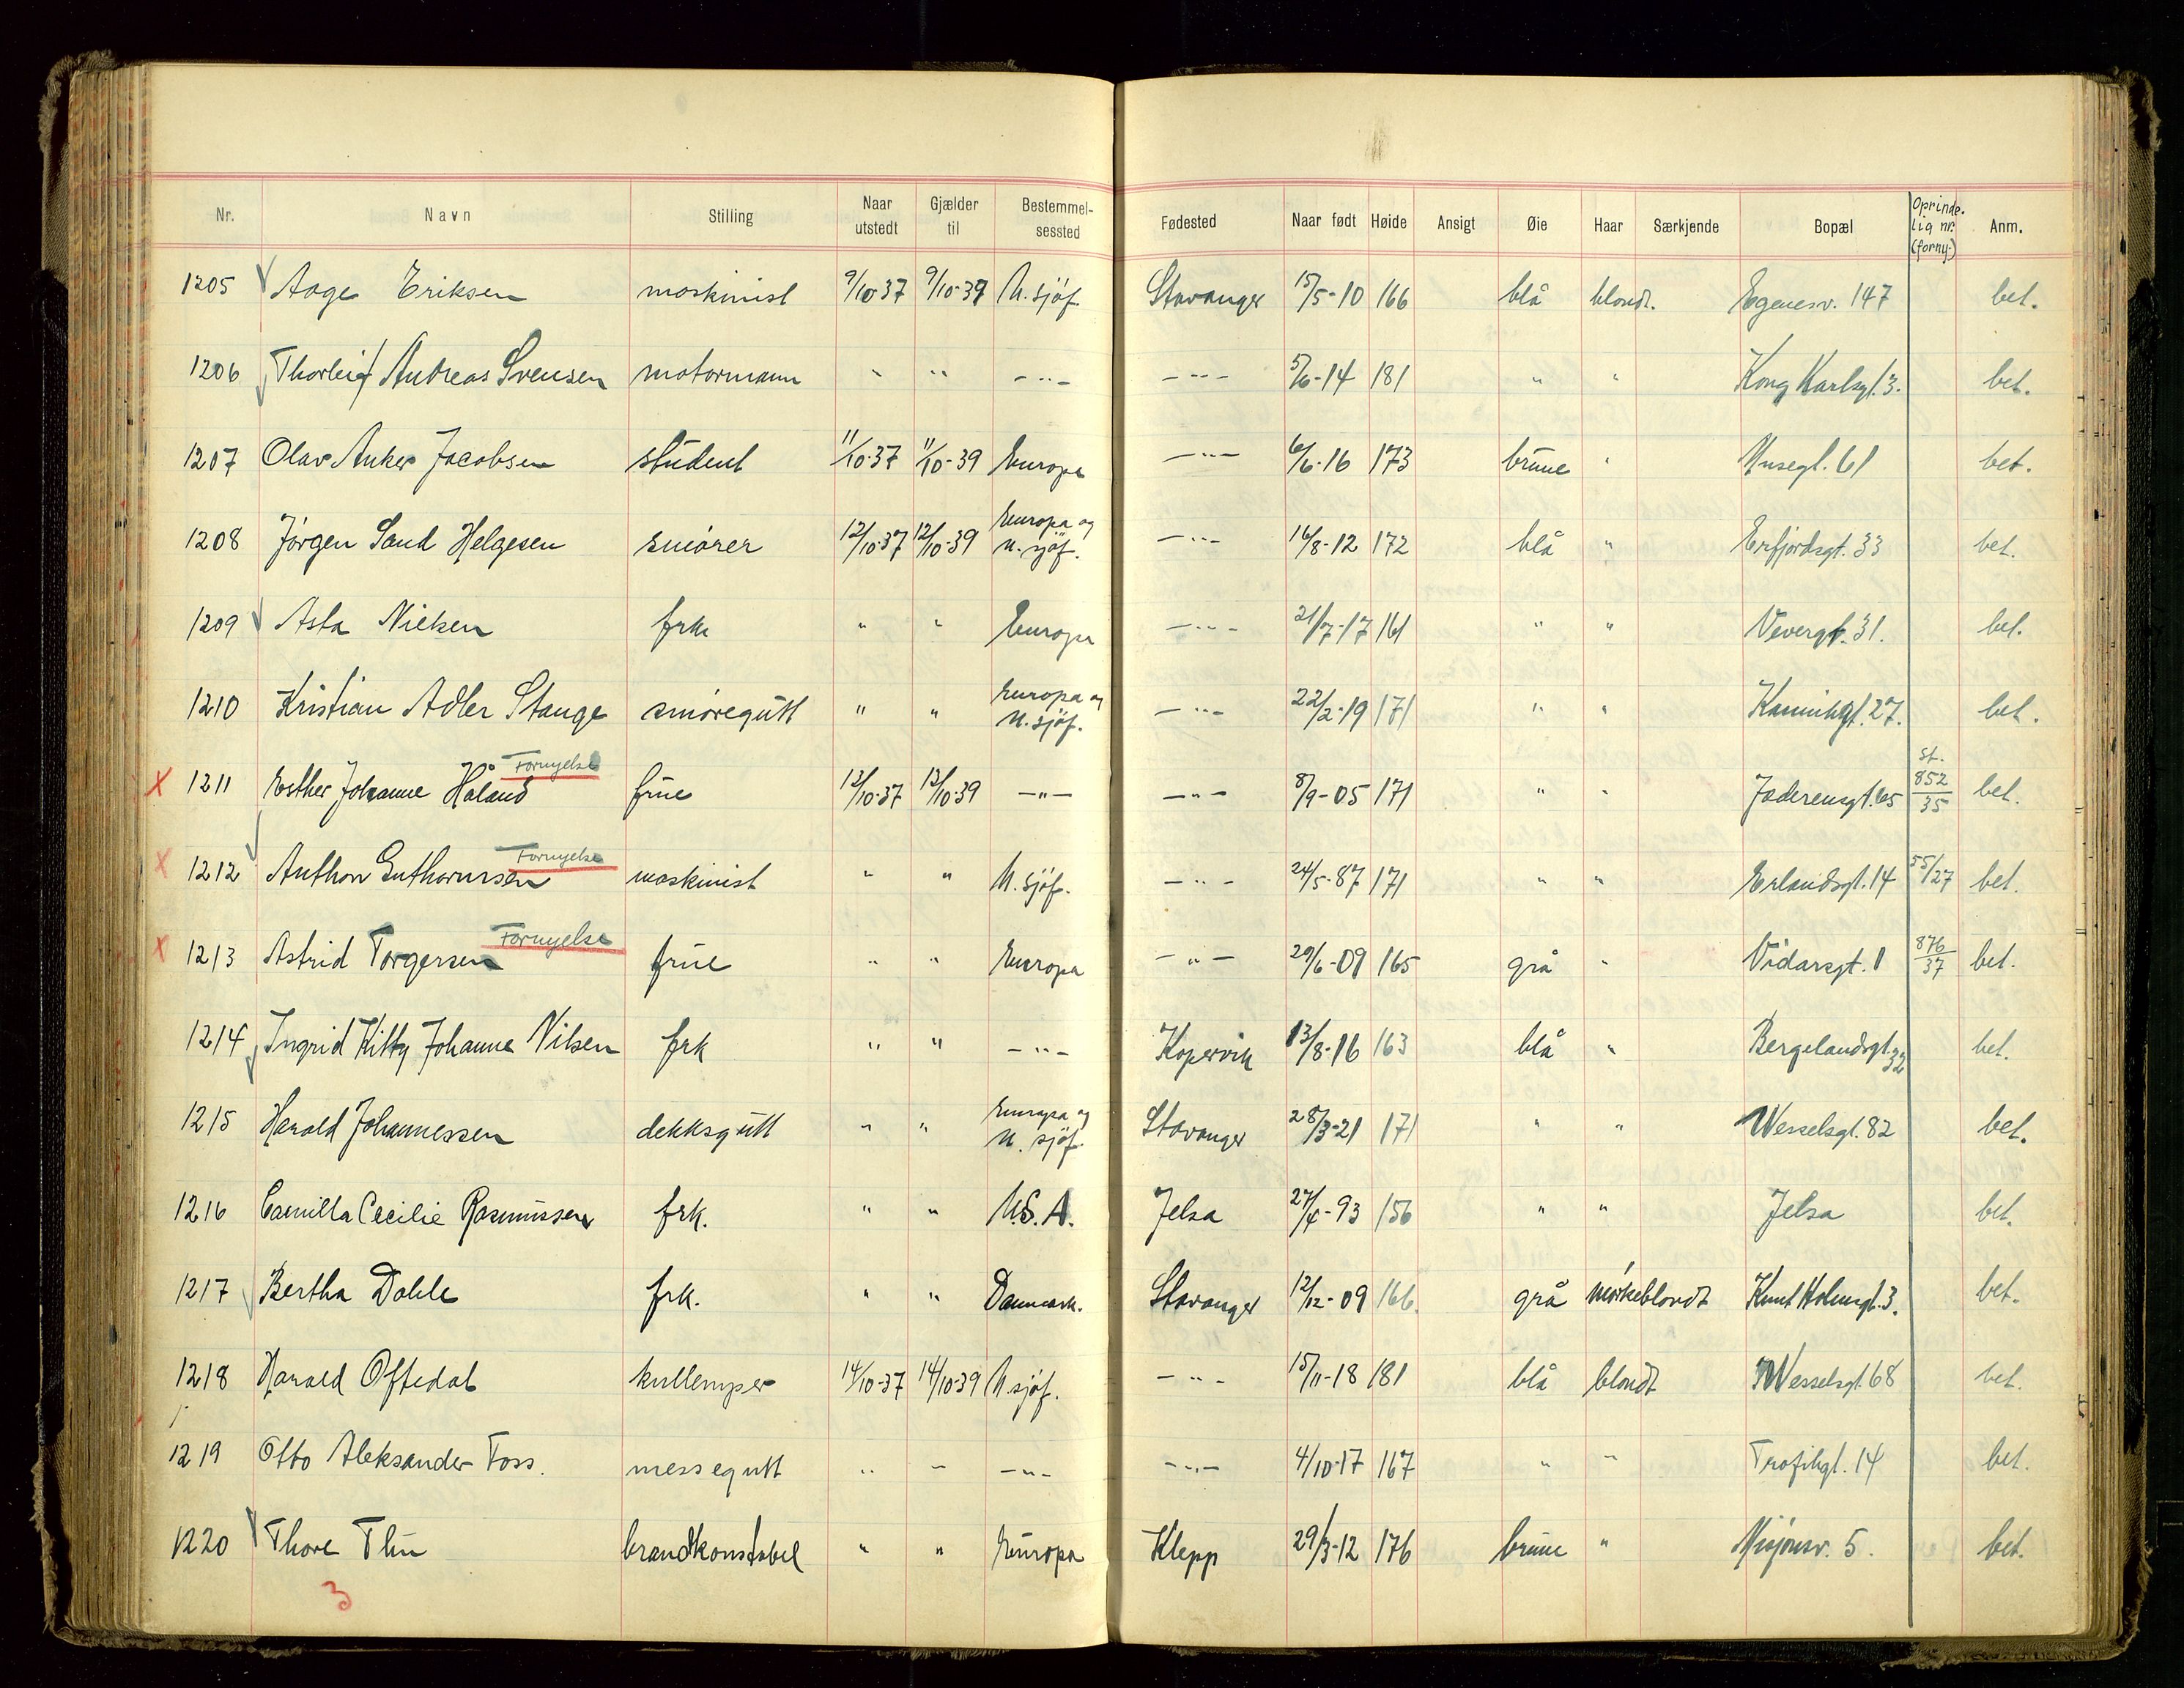 Nr. Navn Stilling Naar utstedt Gjælder til Bestemmel-sessted Fødested Naar født Høide Ansigt Øie Haar Særkjende Bopæl Oprinde-lig nr. (forny.) Anm.
1205 Aage Eriksen maskinist 9/10-37 9/10-39 U. sjöf. Stavanger 15/5-10 166 blå blondt. Egenesv. 147 bet.
1206 Thorleif Andreas Svensen motormann " " -"- -"- 5/6-14 181 " " Kong Karlsgt. 3. bet.
1207 Olav Anker Jacobsen student 11/10-37 11/10-39 Europa -"- 6/6-16 173 brune " 61 bet.
1208 Jörgen Sand Helgesen smörer 12/10-37 12/10-39 Europa og u. sjöf. -"- 16/8-12 172 blå " Erfjordsgt. 33 bet.
1209 Asta Nielsen frk " " Europa -"- 21/7-17 161 " " Vevergt. 31. bet.
1210 Kristian Adler Stange smöregutt " " Europa og u. sjöf. -"- 22/2-19 171 " " Kannikgt. 27. bet.
Fornyelse st.
X 1211 Esther Johanne Håland frue 13/10-37 13/10-39 -"- -"- 8/9-05 171 " " Jaderensgt. 65 852/35 bet.
Fornyelse
X 1212 Anthon Guthormsen maskinist " " U. sjöf. -"- 24/5-87 171 " " Erlandsgt. 14 55/27 bet.
Fornyelse
X 1213 Astrid Torgersen frue " " Europa -"- 29/6-09 165 grå " Vidarsgt. 1 876/37 bet.
1214 Ingrid Kitty Johanne Nilsen frk " " -"- Kopervik 13/8-16 163 blå " Bergelandsgt. 32 bet.
1215 Harald Johannessen dekksgutt " " Europa og u. sjöf. Stavanger 28/3-21 171 " " Wesselsgt. 82 bet.
1216 Camilla Cecilie Rasmussen frk. " " U.S.A. Jelsa 27/4-93 156 " " Jelsa bet.
1217 Bertha Dahle frk. " " Danmark. Stavanger 12/12-09 166. grå mörkeblondt Knut Holmsgt. 3. bet.
1218 Harald Oftedal kullemper 14/10-37 14/10-39 U. sjöf. -"- 15/11-18 181 blå blondt Wesselsgt. 68 bet.
1219 Otto Aleksander Foss. messegutt " " -"- -"- 4/10-17 167 " " 14 bet.
1220 Thore Thu brandkonstabel " " Europa Klepp 29/3-12 176 brune " Misjonsv. 5. bet.
3